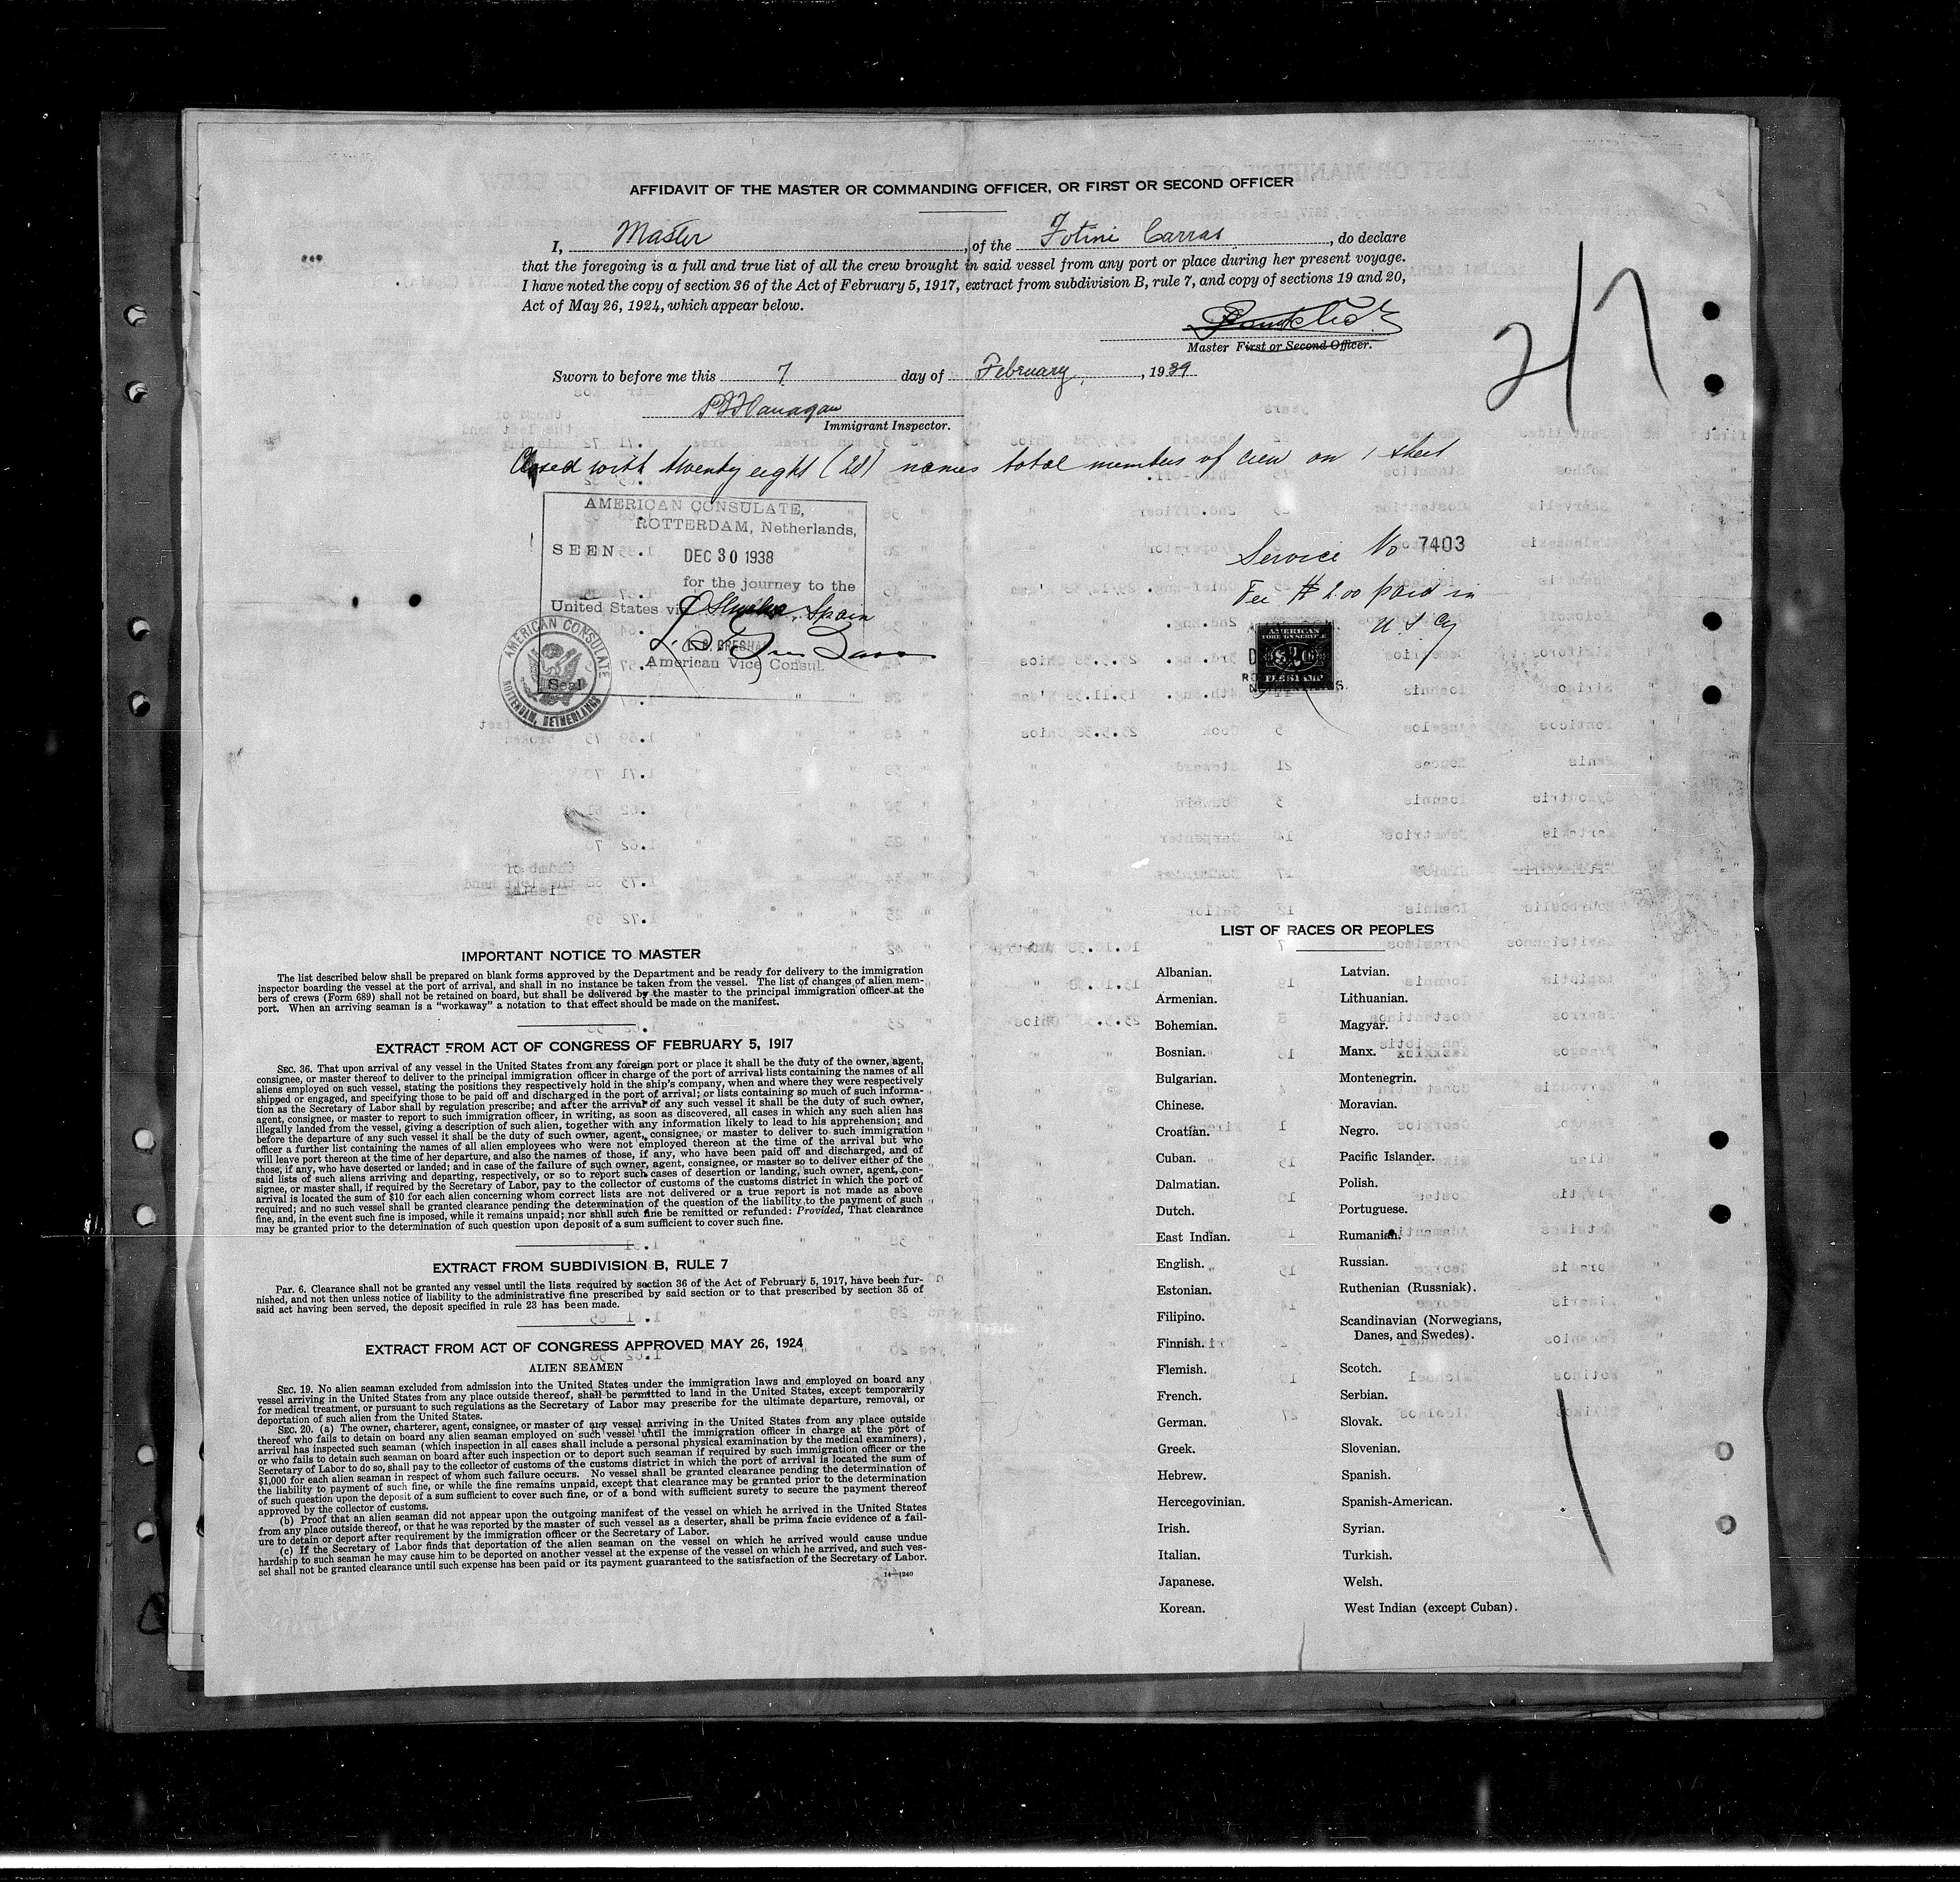 AFFIDAVIT OF THE MASTER OR COMMANDING OFFICER, OR FIRST OR SECOND OFFICER
I, Master, of the Fotini Carras, do declare
that the foregoing is a full and true list of all the crew brought in said vessel from any port or place during her present voyage.
I have noted the copy of section 36 of the Act of February 5, 1917, extract from subdivision B, rule 7, and copy of sections 19 and 20,
Act of May 26, 1924, which appear below.
Master First or Second Officer.
Sworn to before me this 7 day of February, 1939
Flanagan
Immigrant Inspector.
2/7
Closed with twenty eight (28) names total members of crew on 1 sheet
AMERICAN CONSULATE,
ROTTERDAM, Netherlands,
SEEN
DEC 30 1938
for the journey to the
United States via Spain
American Vice Consul.
Seal
AMERICAN CONSULATE
ROTTERDAM, NETHERLANDS
Service No 7403
Fee $2.00 paid in
U.S. Cy
AMERICAN
FOREIGN SERVICE
IMPORTANT NOTICE TO MASTER
The list described below shall be prepared on blank forms approved by the Department and be ready for delivery to the immigration
inspector boarding the vessel at the port of arrival, and shall in no instance be taken from the vessel. The list of changes of alien mem-
bers of crews (Form 689) shall not be retained on board, but shall be delivered by the master to the principal immigration officer at the
port. When an arriving seaman is a "workaway" a notation to that effect should be made on the manifest.
EXTRACT FROM ACT OF CONGRESS OF FEBRUARY 5, 1917
SEC. 36. That upon arrival of any vessel in the United States from any foreign port or place it shall be the duty of the owner, agent,
consignee, or master thereof to deliver to the principal immigration officer in charge of the port of arrival lists containing the names of all
aliens employed on such vessel, stating the positions they respectively hold in the ship's company, when and where they were respectively
shipped or engaged, and specifying those to be paid off and discharged in the port of arrival; or lists containing so much of such informa-
tion as the Secretary of Labor shall by regulation prescribe; and after the arrival of any such vessel it shall be the duty of such owner,
agent, consignee, or master to report to such immigration officer, in writing, as soon as discovered, all cases in which any such alien has
illegally landed from the vessel, giving a description of such alien, together with any information likely to lead to his apprehension; and
before the departure of any such vessel it shall be the duty of such owner, agent, consignee, or master to deliver to such immigration
officer a further list containing the names of all alien employees who were not employed thereon at the time of the arrival but who
will leave port thereon at the time of her departure, and also the names of those, if any, who have been paid off and discharged, and of
those, if any, who have deserted or landed; and in case of the failure of such owner, agent, consignee, or master so to deliver either of the
said lists of such aliens arriving and departing, respectively, or so to report such cases of desertion or landing, such owner, agent, con-
signee, or master shall, if required by the Secretary of Labor, pay to the collector of customs of the customs district in which the port of
arrival is located the sum of $10 for each alien concerning whom correct lists are not delivered or a true report is not made as above
required; and no such vessel shall be granted clearance pending the determination of the question of the liability to the payment of such
fine, and, in the event such fine is imposed, while it remains unpaid; nor shall such fine be remitted or refunded: Provided, That clearance
may be granted prior to the determination of such question upon deposit of a sum sufficient to cover such fine.
EXTRACT FROM SUBDIVISION B, RULE 7
Par. 6. Clearance shall not be granted any vessel until the lists required by section 36 of the Act of February 5, 1917, have been fur-
nished, and not then unless notice of liability to the administrative fine prescribed by said section or to that prescribed by section 35 of
said act having been served, the deposit specified in rule 23 has been made.
EXTRACT FROM ACT OF CONGRESS APPROVED MAY 26, 1924
ALIEN SEAMEN
SEC. 19. No alien seaman excluded from admission into the United States under the immigration laws and employed on board any
vessel arriving in the United States from any place outside thereof, shall be permitted to land in the United States, except temporarily
for medical treatment, or pursuant to such regulations as the Secretary of Labor may prescribe for the ultimate departure, removal, or
deportation of such alien from the United States.
SEC. 20. (a) The owner, charterer, agent, consignee, or master of any vessel arriving in the United States from any place outside
thereof who fails to detain on board any alien seaman employed on such vessel until the immigration officer in charge at the port of
arrival has inspected such seaman (which inspection in all cases shall include a personal physical examination by the medical examiners),
or who fails to detain such seaman on board after such inspection or to deport such seaman if required by such immigration officer or the
Secretary of Labor to do so, shall pay to the collector of customs of the customs district in which the port of arrival is located the sum of
$1,000 for each alien seaman in respect of whom such failure occurs. No vessel shall be granted clearance pending the determination of
the liability to payment of such fine, or while the fine remains unpaid, except that clearance may be granted prior to the determination
of such question upon the deposit of a sum sufficient to cover such fine, or of a bond with sufficient surety to secure the payment thereof
approved by the collector of customs.
(b) Proof that an alien seaman did not appear upon the outgoing manifest of the vessel on which he arrived in the United States
from any place outside thereof, or that he was reported by the master of such vessel as a deserter, shall be prima facie evidence of a fail-
ure to detain or deport after requirement by the immigration officer or the Secretary of Labor.
(c) If the Secretary of Labor finds that deportation of the alien seaman on the vessel on which he arrived would cause undue
hardship to such seaman he may cause him to be deported on another vessel at the expense of the vessel on which he arrived, and such ves-
sel shall not be granted clearance until such expense has been paid or its payment guaranteed to the satisfaction of the Secretary of Labor.
14—1240
LIST OF RACES OR PEOPLES
Albanian.
Armenian.
Bohemian.
Bosnian.
Bulgarian.
Chinese.
Croatian.
Cuban.
Dalmatian.
Dutch.
East Indian.
English.
Estonian.
Filipino.
Finnish.
Flemish.
French.
German.
Greek.
Hebrew.
Hercegovinian.
Irish.
Italian.
Japanese.
Korean.
Latvian.
Lithuanian.
Magyar.
Manx.
Montenegrin.
Moravian.
Negro.
Pacific Islander.
Polish.
Portuguese.
Rumanian.
Russian.
Ruthenian (Russniak).
Scandinavian (Norwegians,
Danes, and Swedes).
Scotch.
Serbian.
Slovak.
Slovenian.
Spanish.
Spanish-American.
Syrian.
Turkish.
Welsh.
West Indian (except Cuban).